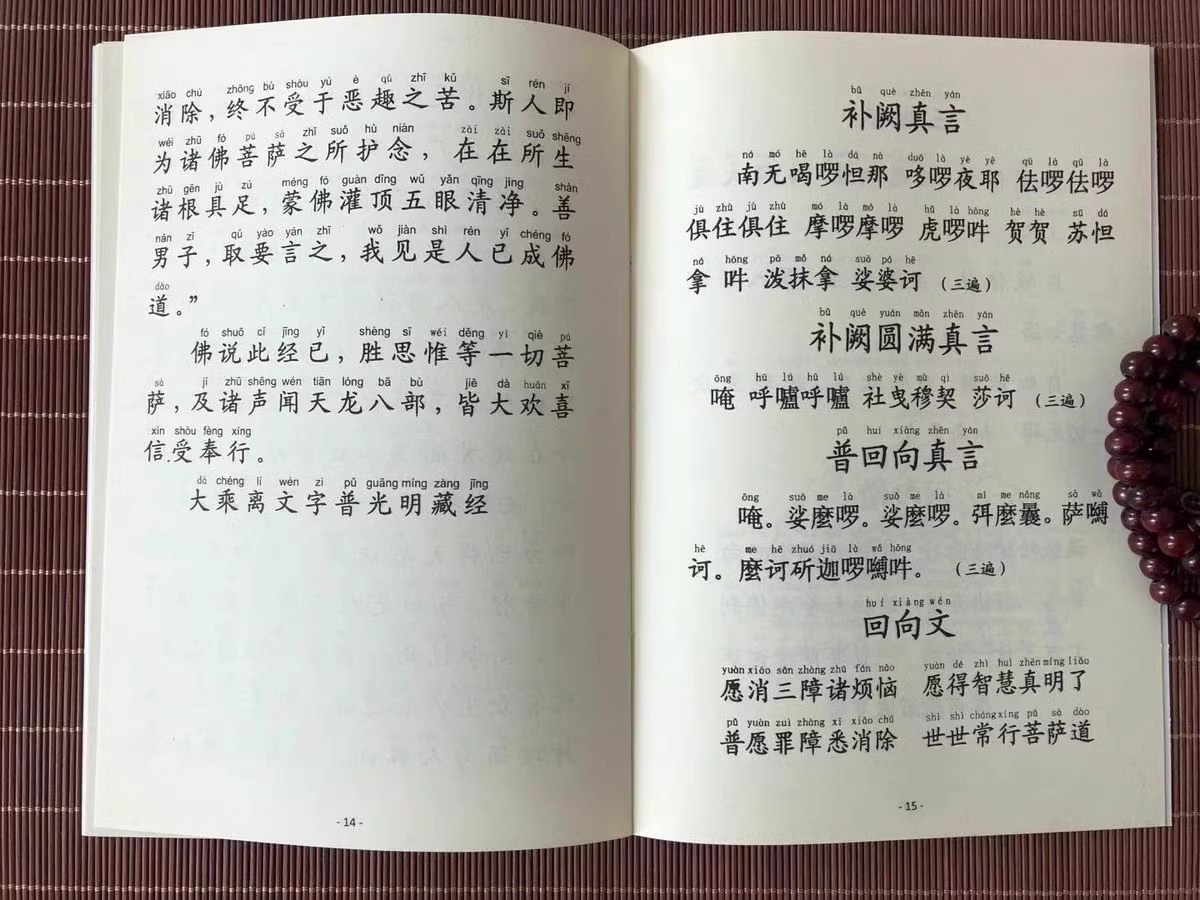 xiāo chú zhōng bù shòu yú è qù zhī kǔ sī rén jí
消除，终不受于恶趣之苦。斯人即
wéi zhū fó pú sà zhī suǒ hù niàn zài zài suǒ shēng
为诸佛菩萨之所护念，在在所生
zhū gēn jù zú méng fó guàn dǐng wǔ yǎn qīng jìng shàn
诸根具足，蒙佛灌顶五眼清净。善
nán zǐ qǔ yào yán zhī wǒ jiàn shì rén yǐ chéng fó
男子，取要言之，我见是人已成佛
dào
道。”
fó shuō cǐ jīng yǐ shèng sī wéi děng yí qiè pú
佛说此经已，胜思惟等一切菩
sà jí zhū shēng wén tiān lóng bā bù jiē dà huān xǐ
萨，及诸声闻天龙八部，皆大欢喜
xìn shòu fèng xíng
信受奉行。
dà chéng lí wén zì pǔ guāng míng zàng jīng
大乘离文字普光明藏经
- 14 -
bǔ què zhēn yán
补阙真言
ná mó hē là dá ná duō là yè yē qū là qū là
南无喝啰怛那 哆啰夜耶 佉啰佉啰
jù zhù jù zhù mó là mó là hǔ là hōng hè hè sū dá
俱住俱住 摩啰摩啰 虎啰吽 贺贺 苏怛
ná hōng pō mǒ ná suō pó hē
拿 吽 泼抹拿 娑婆诃（三遍）
bǔ què yuán mǎn zhēn yán
补阙圆满真言
ōng hū lú hū lú shè yè mù qì suō hē
唵 呼嚧呼嚧 社曳穆契 莎诃（三遍）
pǔ huí xiàng zhēn yán
普回向真言
ōng suō me là suō me là mí me nǎng sà wā
唵。娑麼啰。娑麼啰。弭麼曩。萨嚩
hē me hē zhuó jiā là wā hōng
诃。麼诃斫迦啰嚩吽。（三遍）
huí xiàng wén
回向文
yuàn xiāo sān zhàng zhū fán nǎo yuàn dé zhì huì zhēn míng liǎo
愿消三障诸烦恼 愿得智慧真明了
pǔ yuàn zuì zhàng xī xiāo chú shì shì cháng xíng pú sà dào
普愿罪障悉消除 世世常行菩萨道
- 15 -